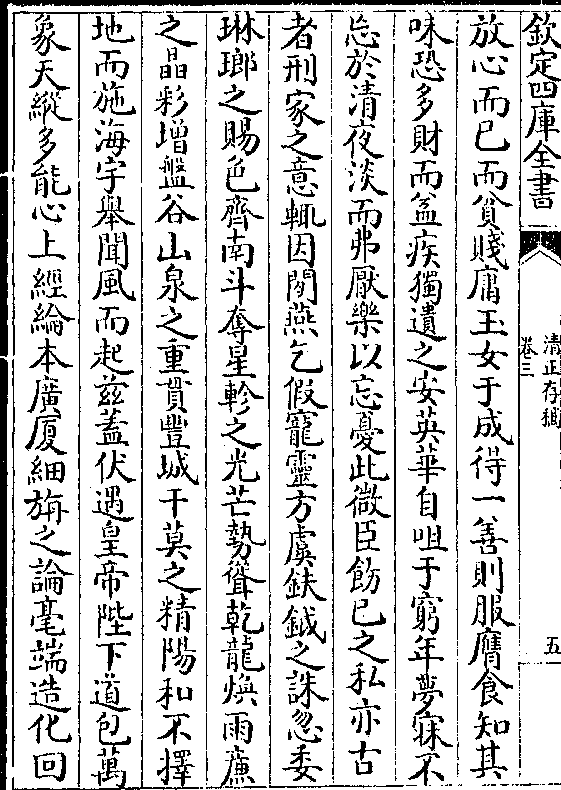 欽定四庫全書
清正存稿
卷三
五
放心而已而貧賤庸玉女于成得一善則服膺食知其
味恐多財而益疾獨遺之安英華自咀于窮年夢寐不
忘於清夜淡而弗厭樂以忘憂此微臣飭已之私亦古
者刑家之意輒因閒燕乞假寵靈方虞鈇鉞之誅忽委
琳瑯之賜色齊南斗奪星軫之光芒勢聳乾龍煥雨廡
之晶彩增盤谷山泉之重貫豐城干莫之精陽和不擇
地而施海宇舉聞風而起兹蓋伏遇皇帝陛下道包萬
象天縱多能心上經綸本廣廈細旃之論毫端造化回